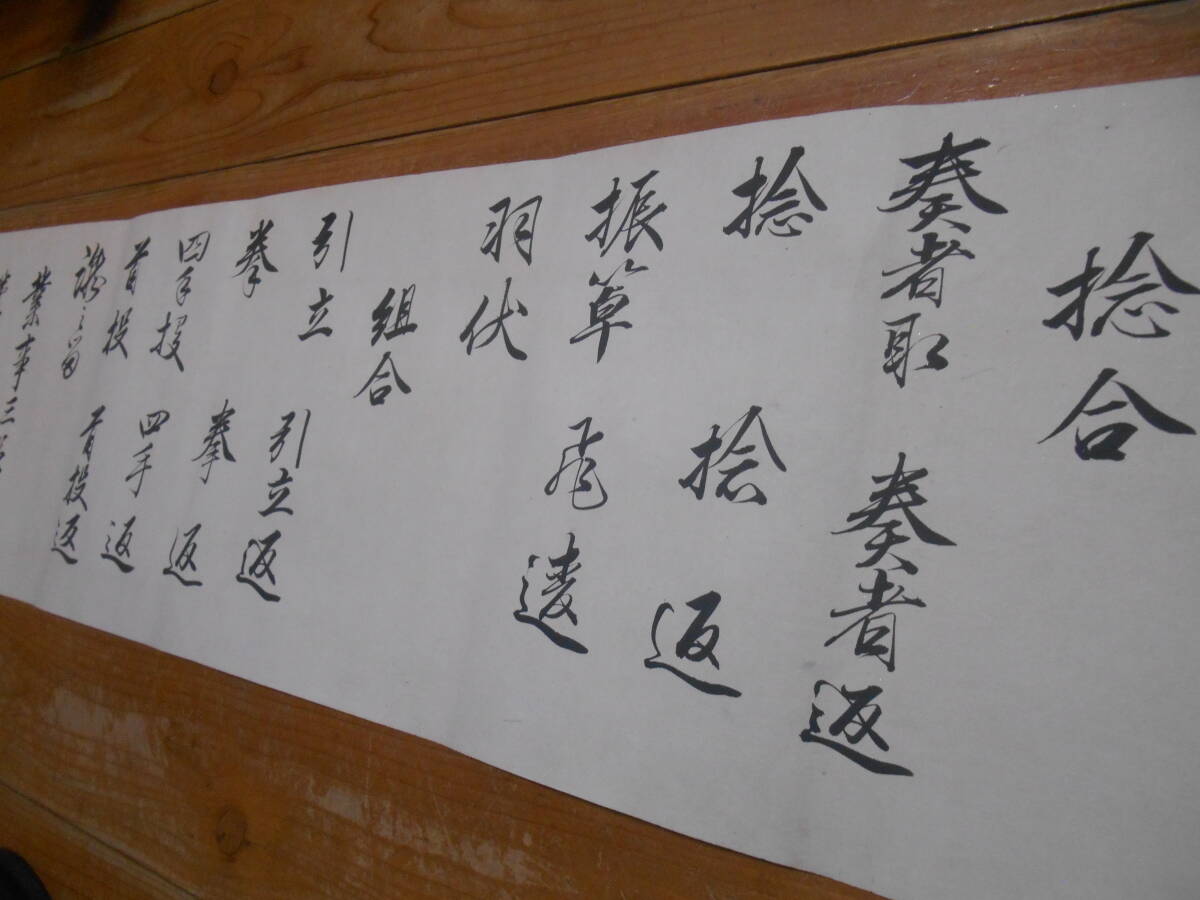 捻合
奏者取 奏者返
捻 捻返
振草 飛違
羽伏
組合
引立 引立返
拳 拳返
四手投 四手返
首投 首投返
業事三